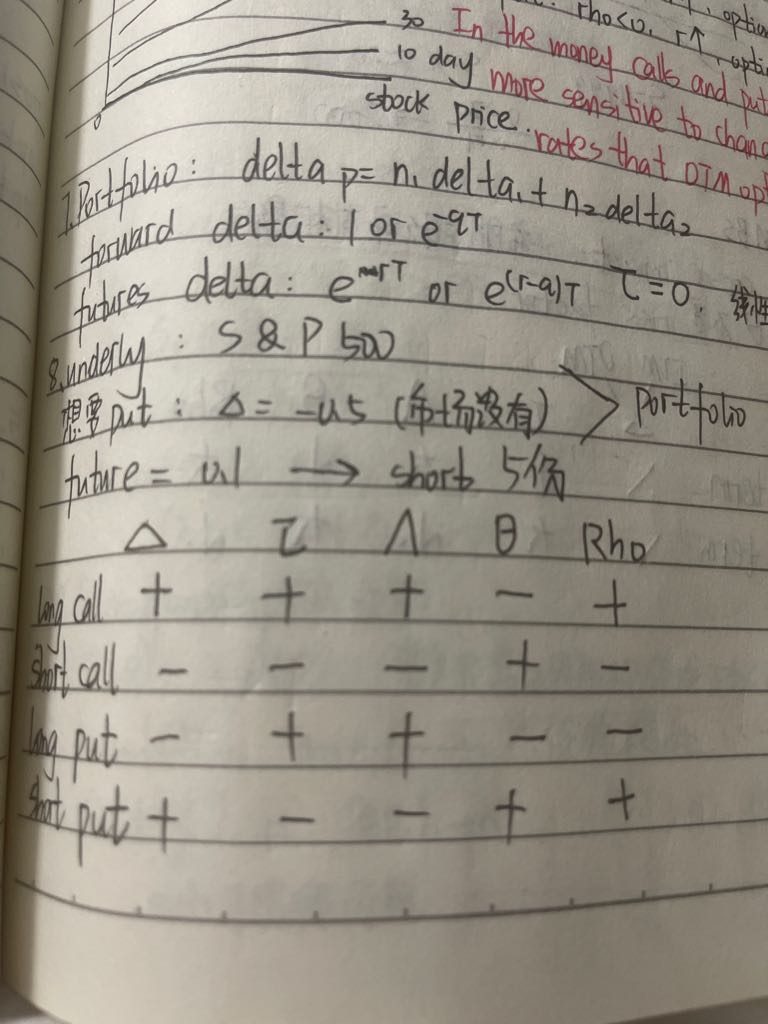 rho<0, r↑, option
30 In the money calls and put
10 day more sensitive to chang
0 stock price. rates that OTM opt
7.Portfolio: delta p= n₁ delta₁ + n₂ delta₂
forward delta: 1 or e^-qT
futures delta: e^rT or e^(r-q)T τ=0. 线性
8.underly: S & P 500
想要put: Δ= -0.5 (市场没有) > portfolio
future= 0.1 → short 5份
Δ τ Λ θ Rho
long call + + + - +
short call - - - + -
long put - + + - -
short put + - - + +